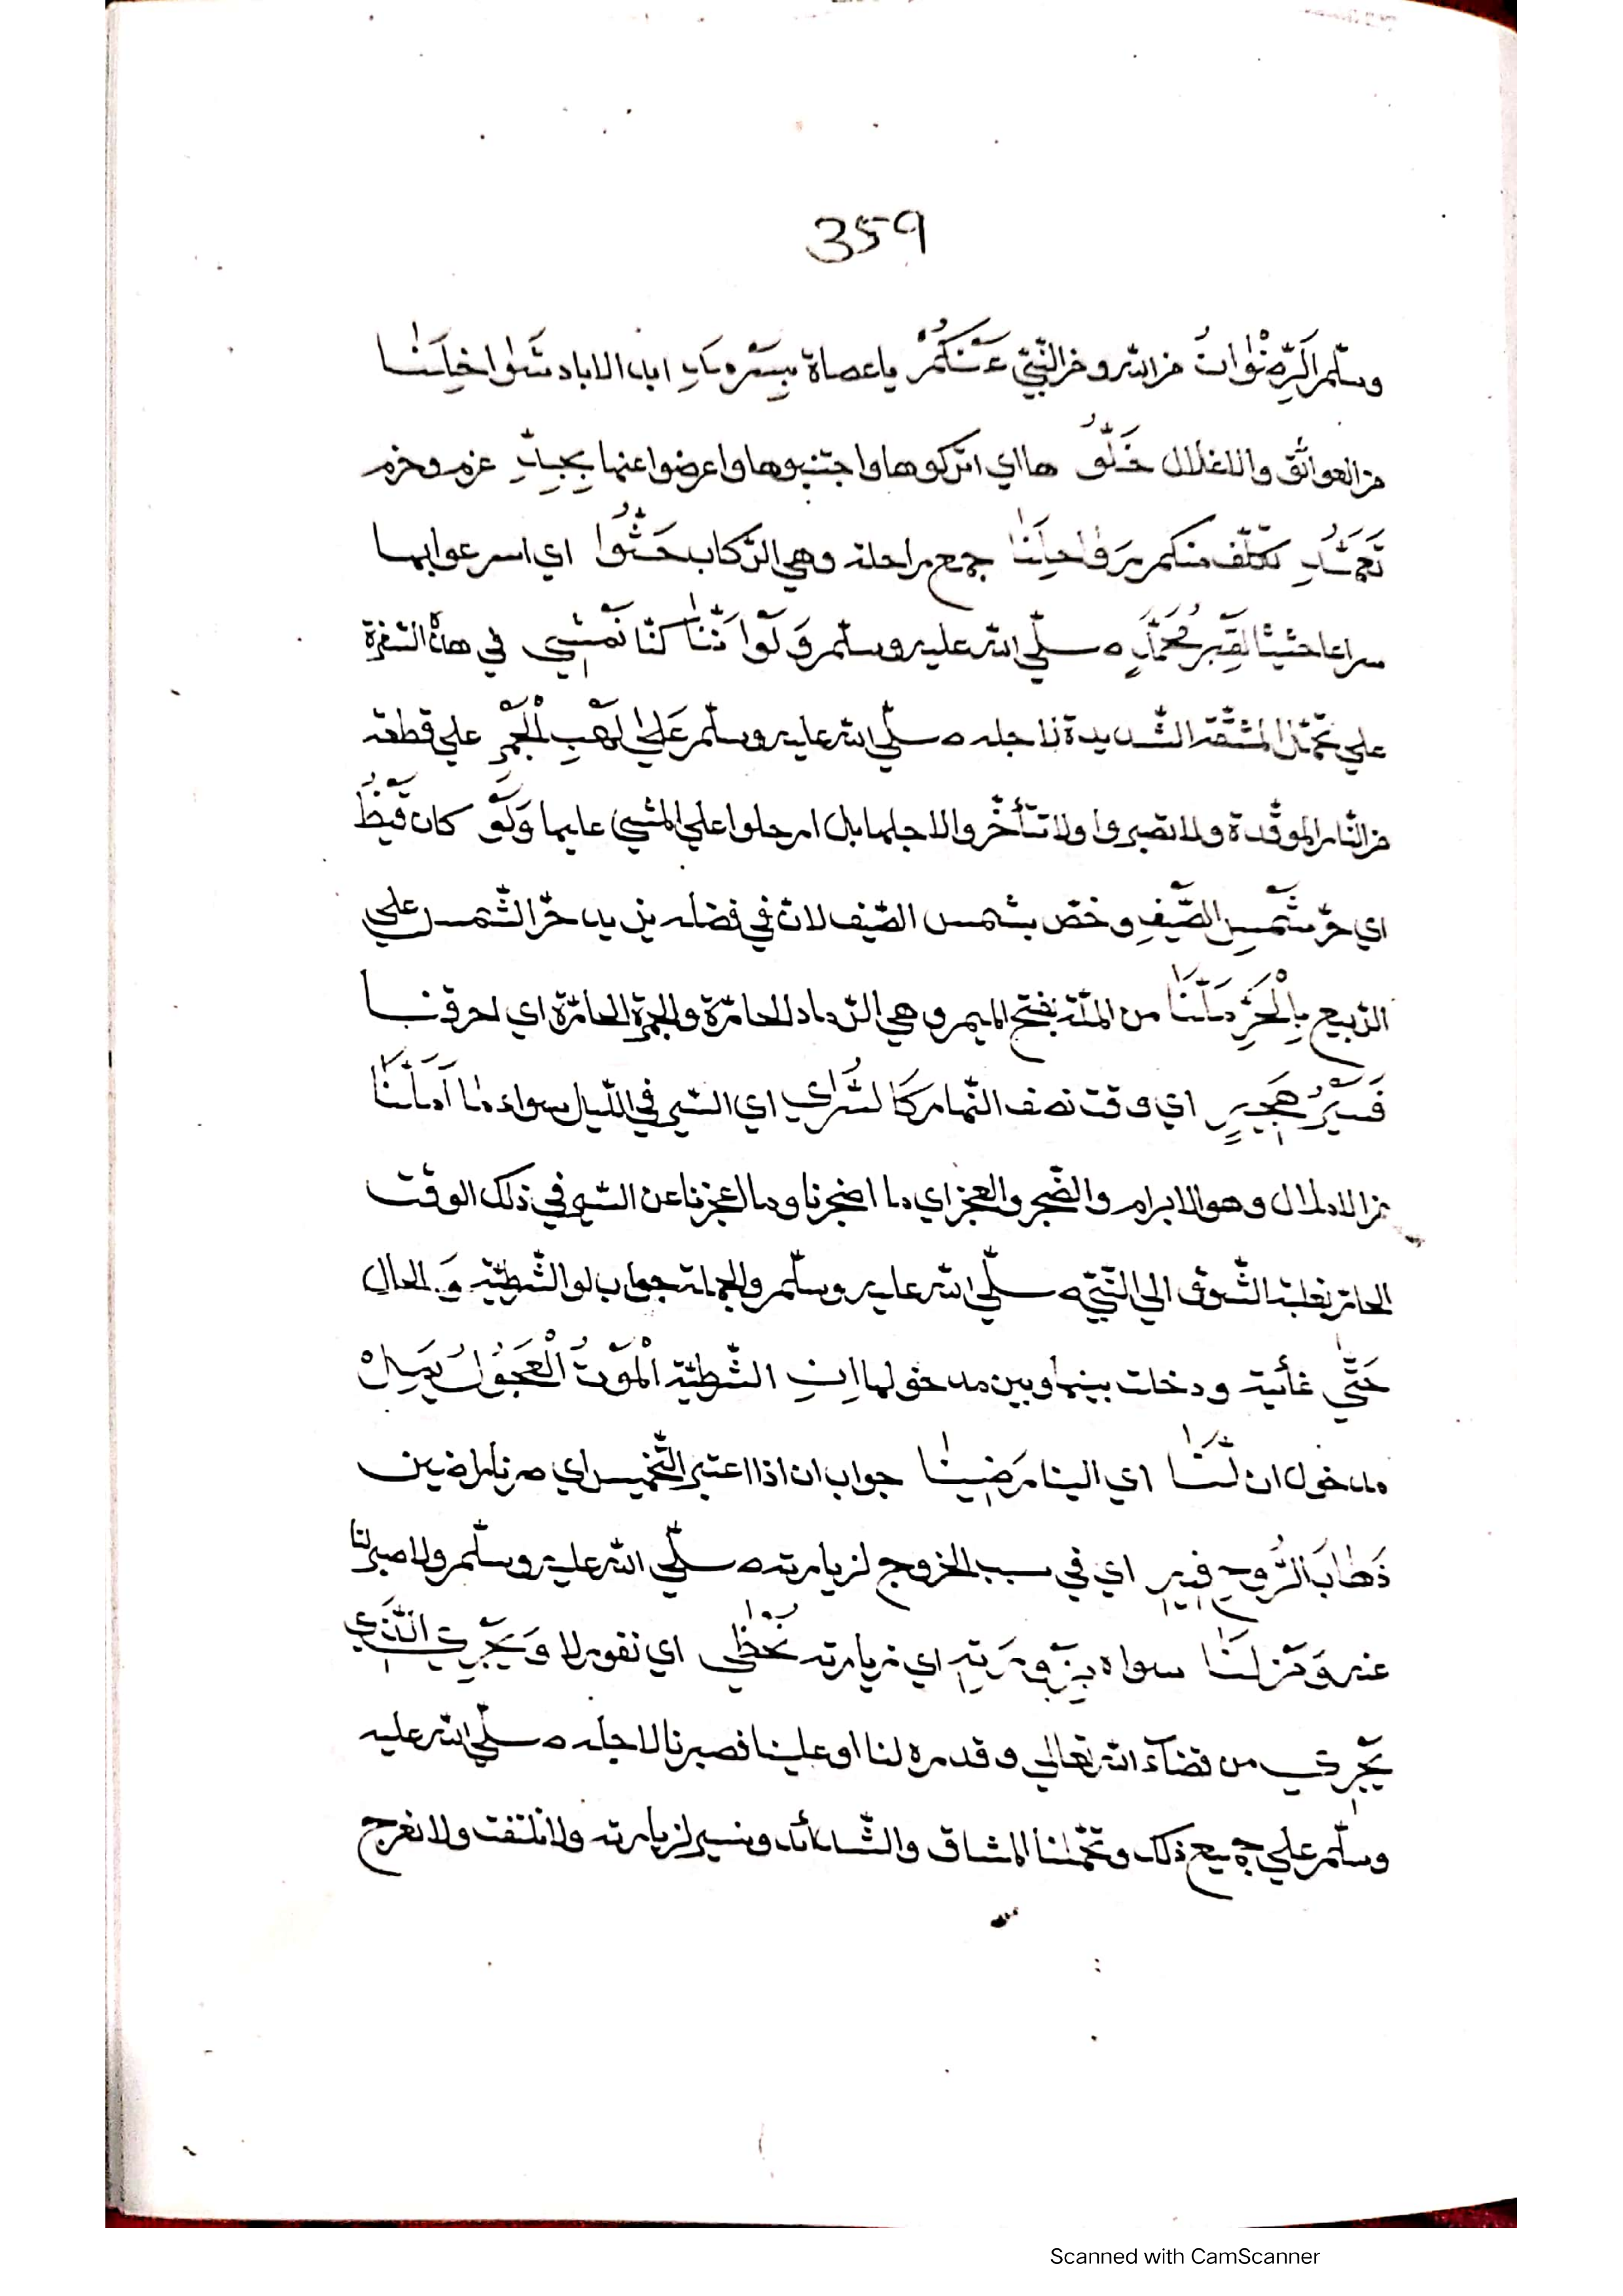 359
وسلّم اَلرِّضْوَانُ من الله ومن النّبيّ عَنْكُمُ يا عصاة بِسَرْمَدٍ ابد الاباد شَوَاغِلَنَا
من العوائق والاغلال خَلُّو ها اي اتركوها واجتنبوها واعرضوا عنها بِجِدِّ عزم وحزم
تَعَمُّدِ تكلّف منكم رَوَاحِلَنَا جمع راحلة وهي الرّكاب حُثُّوا اي اسرعوا بها
سراعا حثيثا لِقَبْرِ مُحَمَّدٍ صلّي الله عليه وسلّم وَلَوْ اَنَّنَا كنّا نَمْشِي في هذه السّفرة
علي تحمّل المشقّة الشّديدة لاجله صلّي الله عليه وسلّم عَلَي لَهَبِ الْجَمْرِ علي قطعة
من النّار الموقّدة ولا تصبروا ولا تتأخّروا لاجلها بل ارحلوا علي المشي عليها وَلَوْ كان قَيْظُ
اي حرّ شَمْسِ الصَّيْفِ وخصّ بشمس الصّيف لان في فضله يزيد حرّ الشّمس علي
الرّبيع بِالْحَرِّ مَلَّنَا من الملّة بفتح الميم وهي الرّماد الحارّة والجمرة الحارّة اي احرقنا
فَسَيْرُ هَجِيرٍ اي وقت نصف النّهار كَالسُّرَاي اي السّير في اللّيل سواء مَا اَمَلَّنَا
من الاملال وهو الابرام والضّجر والعجز اي ما اضجرنا وما اعجزنا عن السّير في ذلك الوقت
الحارّ لغلبة الشّوق الي النّبيّ صلّي الله عليه وسلّم والجملة جواب لو الشّرطيّة وَ الحال
حَتَّي غائية ودخلت بينها وبين مدخولها اِنِ الشّرطيّة الْمَوْتُ الْعَجُولُ يَمِلْ
مدخول ان لَنَا اي الينا رَضِينَا جواب ان اذا اعتبر التّخميس اي صرنا راضين
فَطَابَ الرُّوحِ فِيهِ اي في سبب الخروج لزيارته صلّي الله عليه وسلّم ولا صبر لنا
عنه وَمَنْ لَنَا سواه بِزَوْرَتِهِ اي زيارته نُحْظَي اي نفوز لا وَيَجْرِي الَّذِي
يَجْرِي من قضآء الله تعالي وقدره لنا او علينا فصبرنا لاجله صلّي الله عليه
وسلّم علي جميع ذلك وتحمّلنا المشاق والشّدائد ونسير لزيارته ولا نلتفت ولا نعرج
Scanned with CamScanner